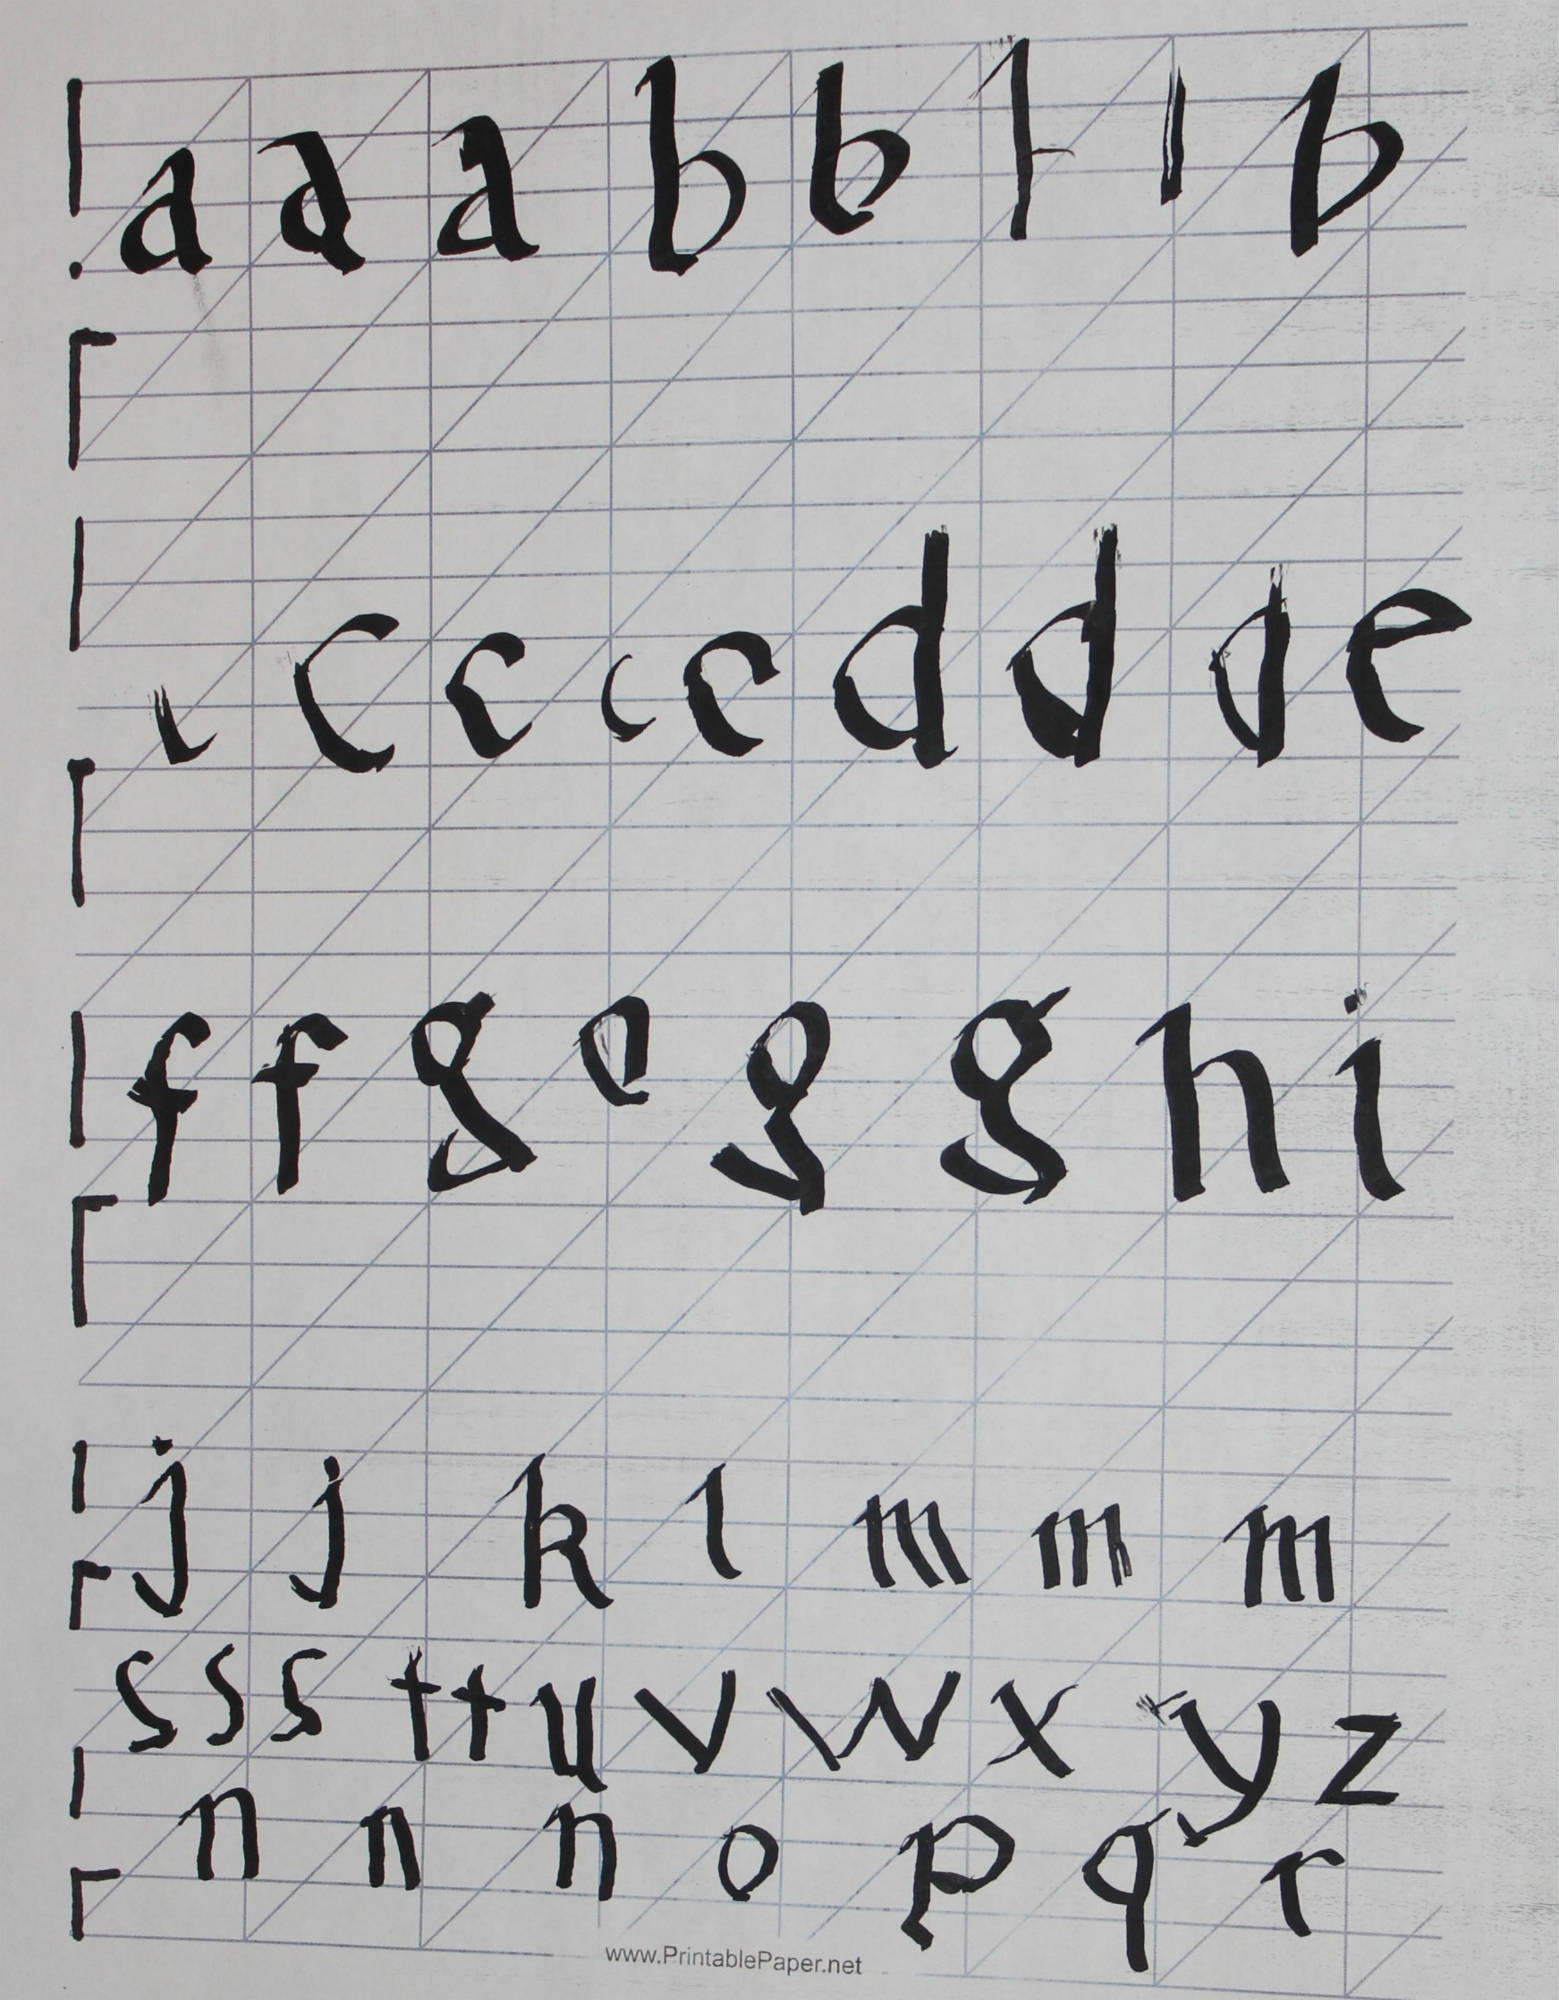 a a a b b b
c c c c d d d e
f f g g g h i
j j k l m m m
s s s t t u v w x y z
n n n o p q r
www.PrintablePaper.net